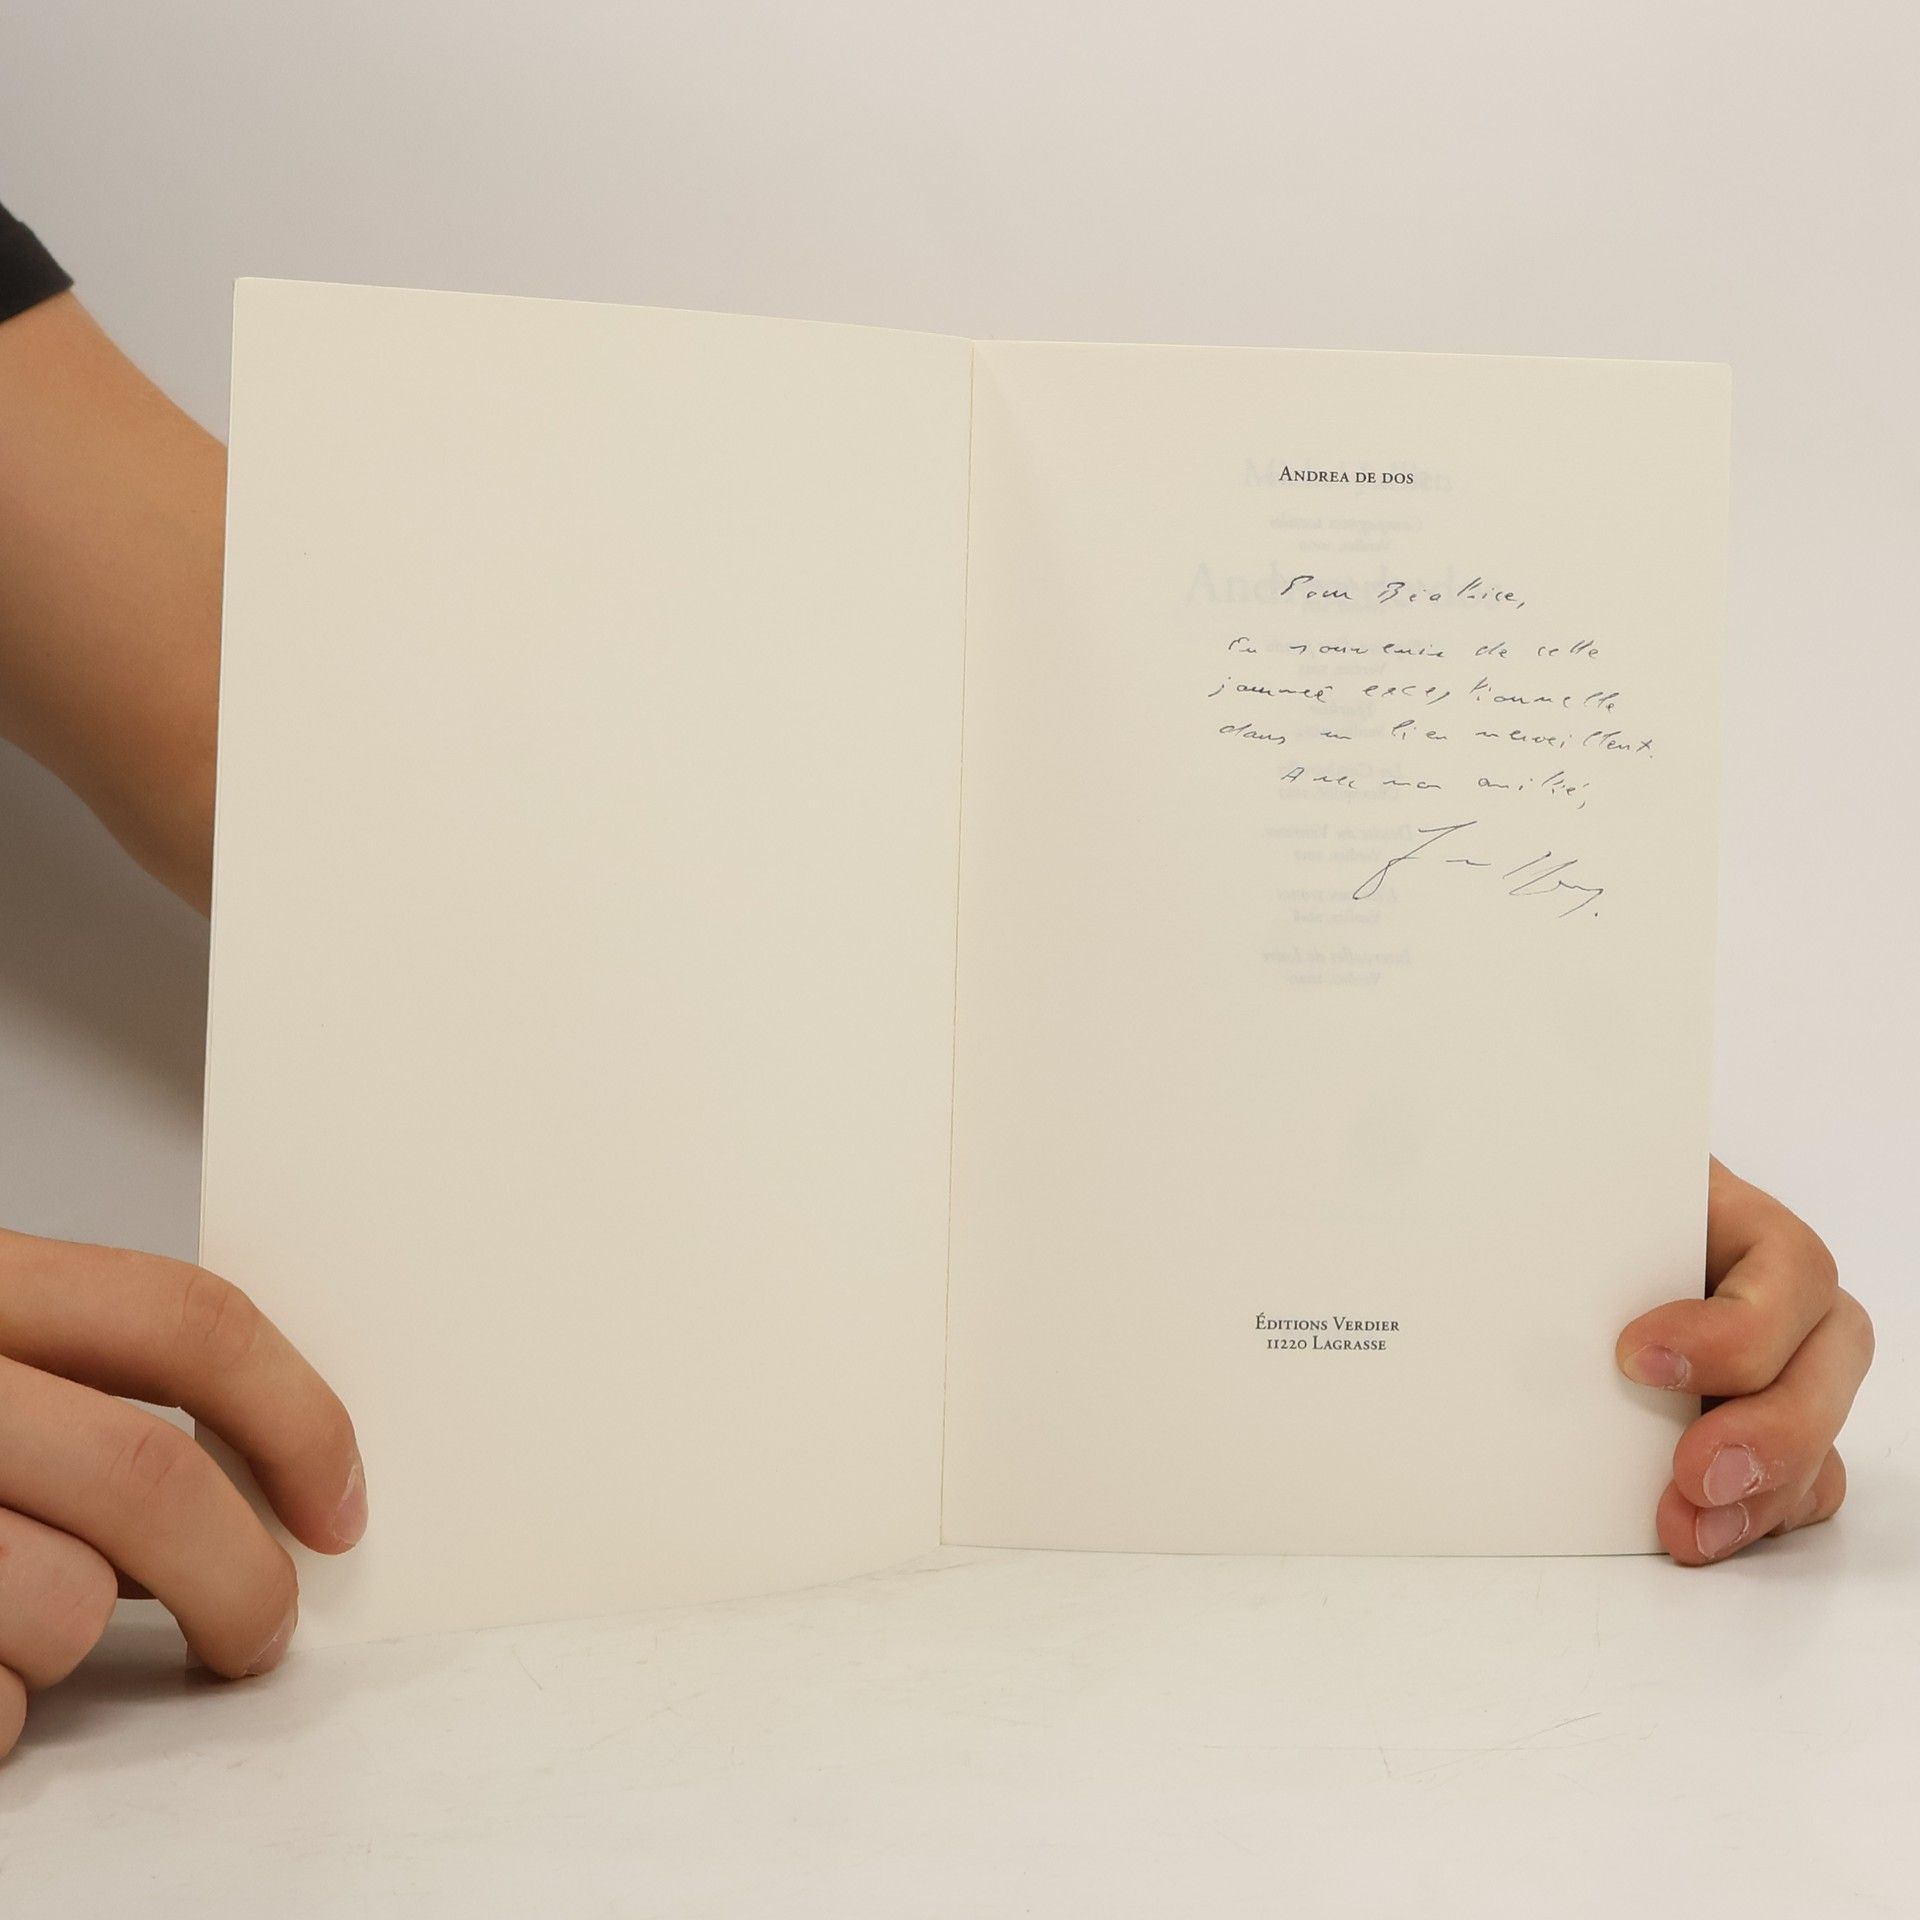 Andrea de dos
Pour Béatrice,
En souvenir de cette
journée exceptionnelle
dans un lieu merveilleux.
Avec mon amitié,
Éditions Verdier
11220 Lagrasse